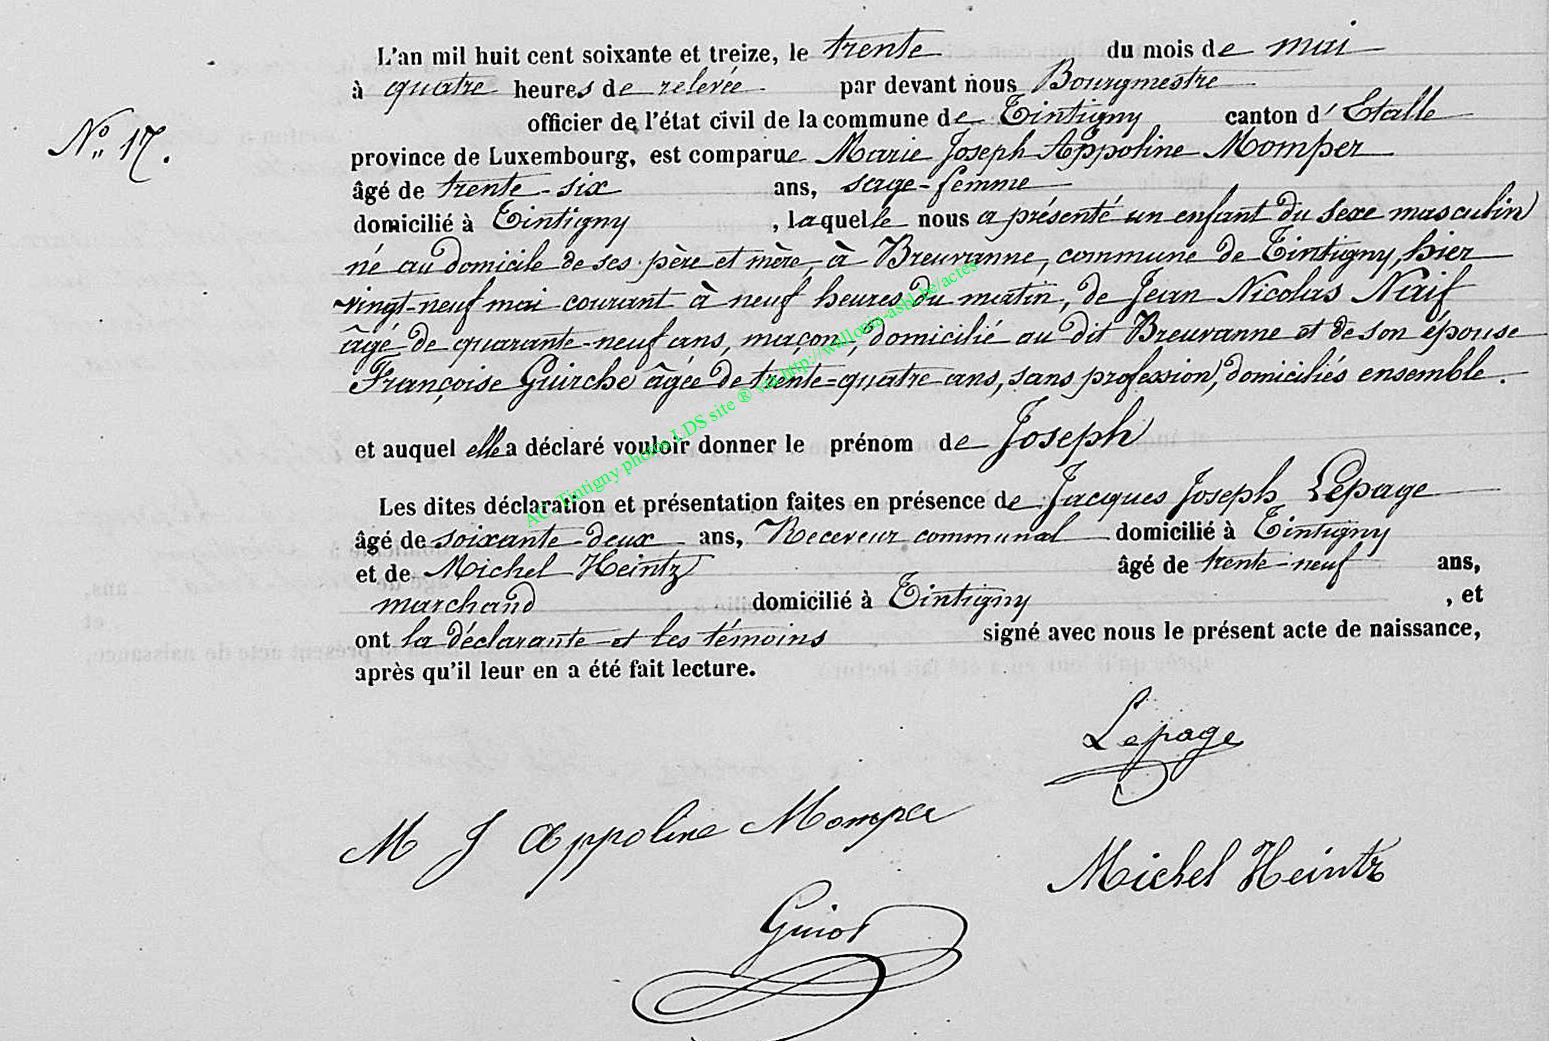 L'an mil huit cent soixante et treize, le trente du mois de mai
à quatre heures de relevée par devant nous Bourgmestre
officier de l'état civil de la commune de Tintigny canton d'Etalle
N° 17.
province de Luxembourg, est comparue Marie Joseph Appoline Momper
âgé de trente-six ans, sage-femme
domicilié à Tintigny , laquelle nous a présenté un enfant du sexe masculin
né au domicile de ses père et mère, à Breuvanne, commune de Tintigny, hier
vingt-neuf mai courant à neuf heures du matin, de Jean Nicolas Naif
âgé de quarante-neuf ans, maçon, domicilié au dit Breuvanne et de son épouse
Françoise Guirche âgée de trente-quatre ans, sans profession, domiciliés ensemble.
et auquel elle a déclaré vouloir donner le prénom de Joseph
Les dites déclaration et présentation faites en présence de Jacques Joseph Lepage
âgé de soixante-deux ans, Receveur communal domicilié à Tintigny
et de Michel Heintz âgé de trente-neuf ans,
marchand domicilié à Tintigny , et
ont la déclarante et les témoins signé avec nous le présent acte de naissance,
après qu'il leur en a été fait lecture.
Lepage
M J Appoline Momper
Michel Heintz
Guiot
AC Tintigny photos LDS site ® via http://wallonia-asbl.be/actes